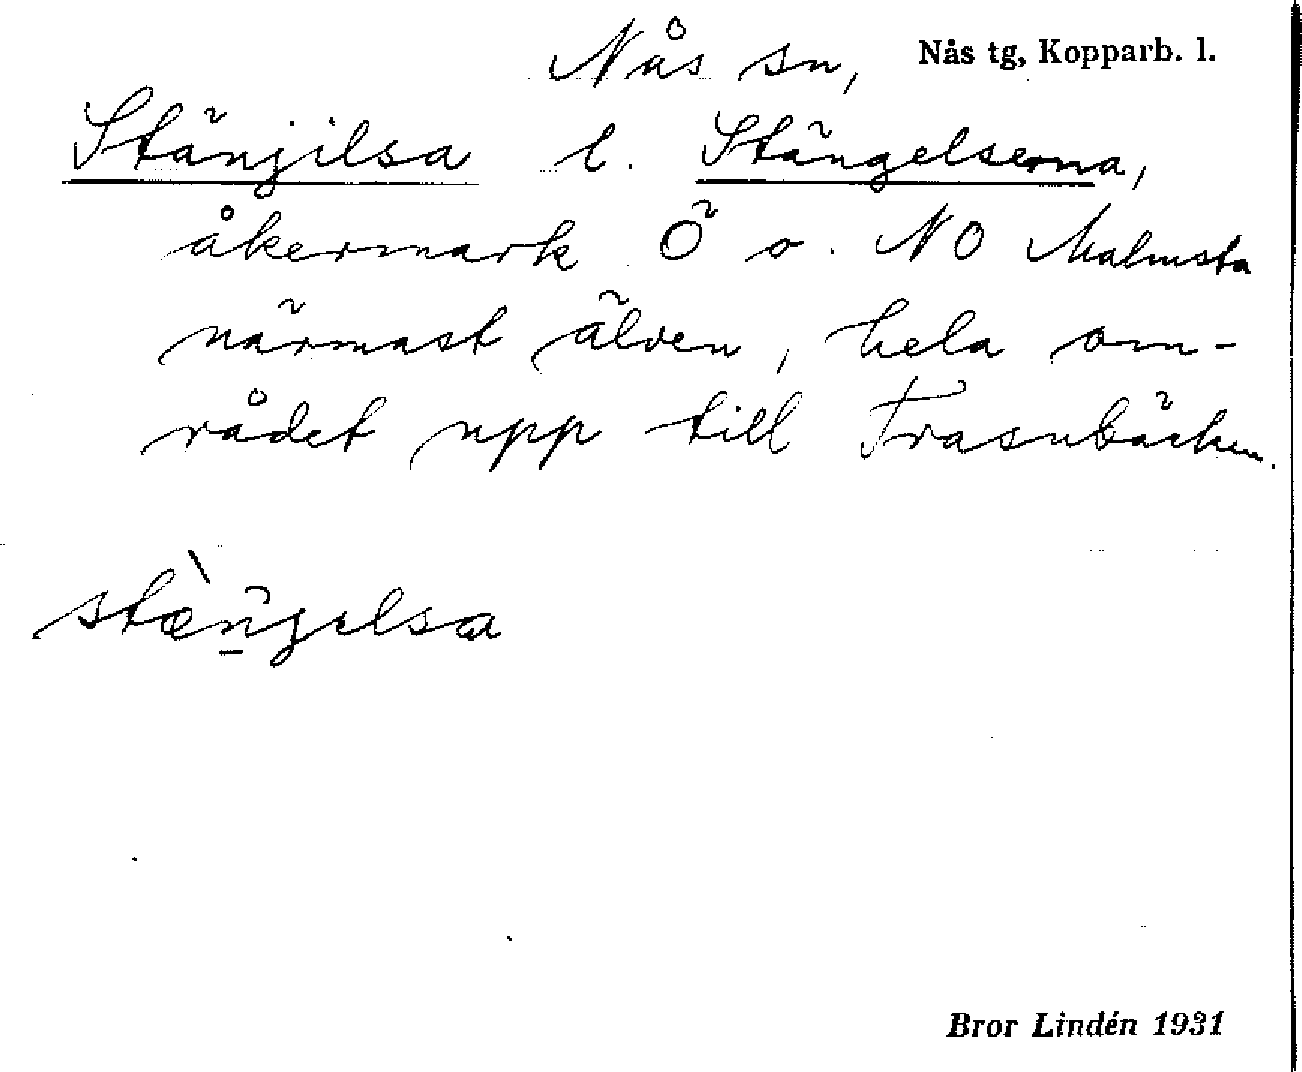 Nås sn, Nås tg, Kopparb. l.
Stängilsa l. Stängelserna,
åkermark Ö o. NO Malmsta
närmast älven, hela om-
rådet upp till Trasnbäcken.
stæ̀n̠gelsa
Bror Lindén 1931